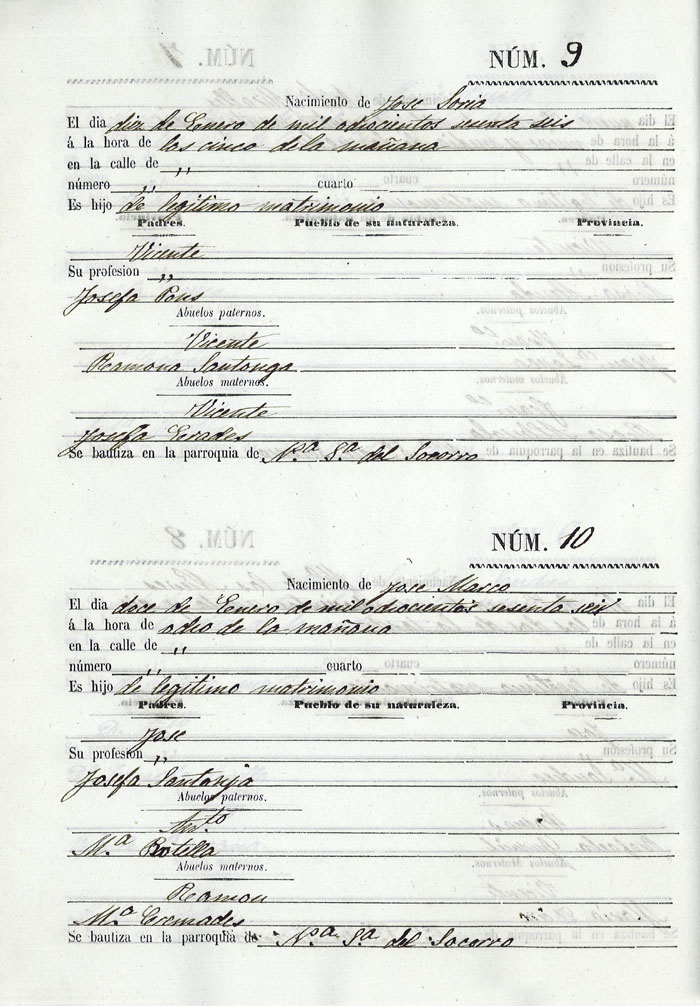 NÚM. 9
Nacimiento de Jose Soria
El dia diez de Enero de mil ochocientos sesenta seis
á la hora de las cinco de la mañana
en la calle de ,,
número ,, cuarto
Es hijo de legitimo matrimonio
Padres. Pueblo de su naturaleza. Provincia.
Vicente
Su profesion ,,
Josefa Pons
Abuelos paternos.
Vicente
Ramona Santonga
Abuelos maternos.
Vicente
Josefa
Se bautiza en la parroquia de Nra Sra del Socorro
NÚM. 10
Nacimiento de Jose Marco
El dia doce de Enero de mil ochocientos sesenta seis
á la hora de ocho de la mañana
en la calle de ,,
número ,, cuarto
Es hijo de legitimo matrimonio
Padres. Pueblo de su naturaleza. Provincia.
Jose
Su profesion ,,
Josefa Santonja
Abuelos paternos.
Anto
Ma Botella
Abuelos maternos.
Ramon
Ma Cremades
Se bautiza en la parroquia de Nra Sra del Socorro